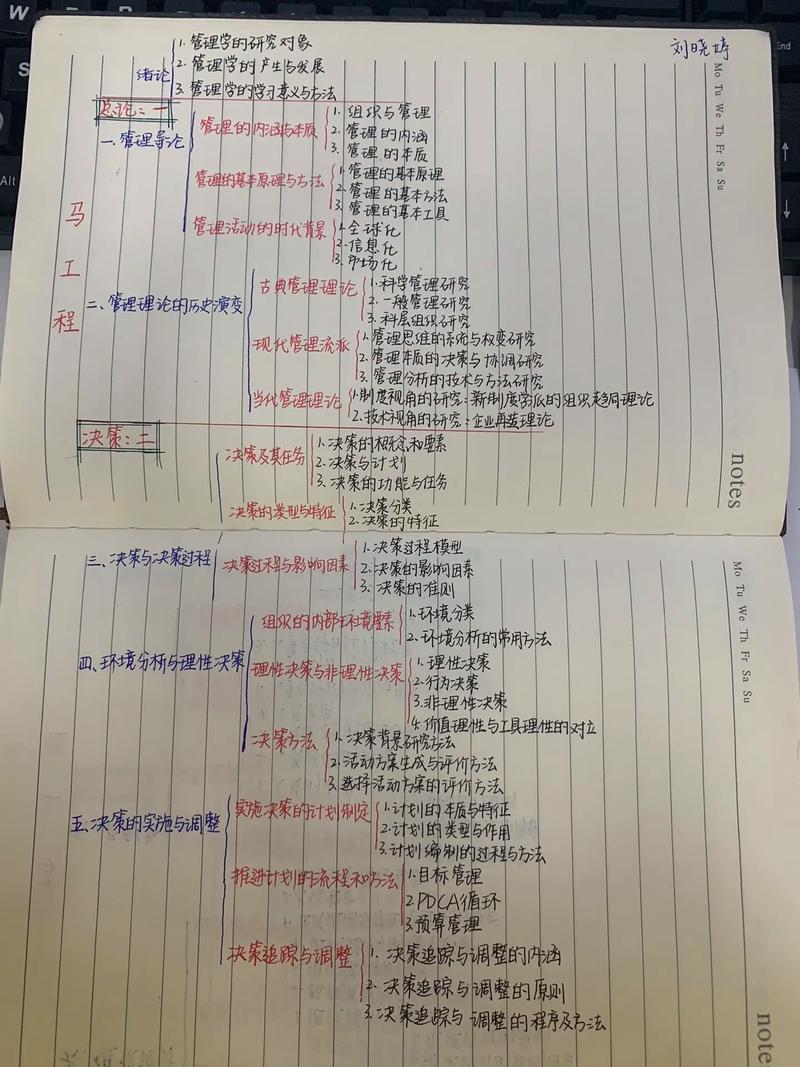 刘晓婷
绪论
1. 管理学的研究对象
2. 管理学的产生与发展
3. 管理学的学习意义与方法
总论：一
马工程
一、管理导论
管理的内涵与本质
1. 组织与管理
2. 管理的内涵
3. 管理的本质
管理的基本原理与方法
1. 管理的基本原理
2. 管理的基本方法
3. 管理的基本工具
管理活动的时代背景
1. 全球化
2. 信息化
3. 市场化
二、管理理论的历史演变
古典管理理论
1. 科学管理研究
2. 一般管理研究
3. 科层组织研究
现代管理流派
1. 管理思维的系统与权变研究
2. 管理本质的决策与协调研究
3. 管理分析的技术与方法研究
当代管理理论
1. 制度视角的研究：新制度学派的组织趋同理论
2. 技术视角的研究：企业再造理论
决策：二
三、决策与决策过程
决策及其任务
1. 决策的概念和要素
2. 决策与计划
3. 决策的功能与任务
决策的类型与特征
1. 决策分类
2. 决策的特征
决策过程与影响因素
1. 决策过程模型
2. 决策的影响因素
3. 决策的准则
四、环境分析与理性决策
组织的内部环境要素
1. 环境分类
2. 环境分析的常用方法
理性决策与非理性决策
1. 理性决策
2. 行为决策
3. 非理性决策
4. 价值理性与工具理性的对立
决策方法
1. 决策背景研究方法
2. 活动方案生成与评价方法
3. 选择活动方案的评价方法
五、决策的实施与调整
实施决策的计划制定
1. 计划的本质与特征
2. 计划的类型与作用
3. 计划编制的过程与方法
推进计划的流程和方法
1. 目标管理
2. PDCA循环
3. 预算管理
决策追踪与调整
1. 决策追踪与调整的内涵
2. 决策追踪与调整的原则
3. 决策追踪与调整的程序及方法
Mo Tu We Th Fr Sa Su
notes
Mo Tu We Th Fr Sa Su
notes
W
S
Alt
End